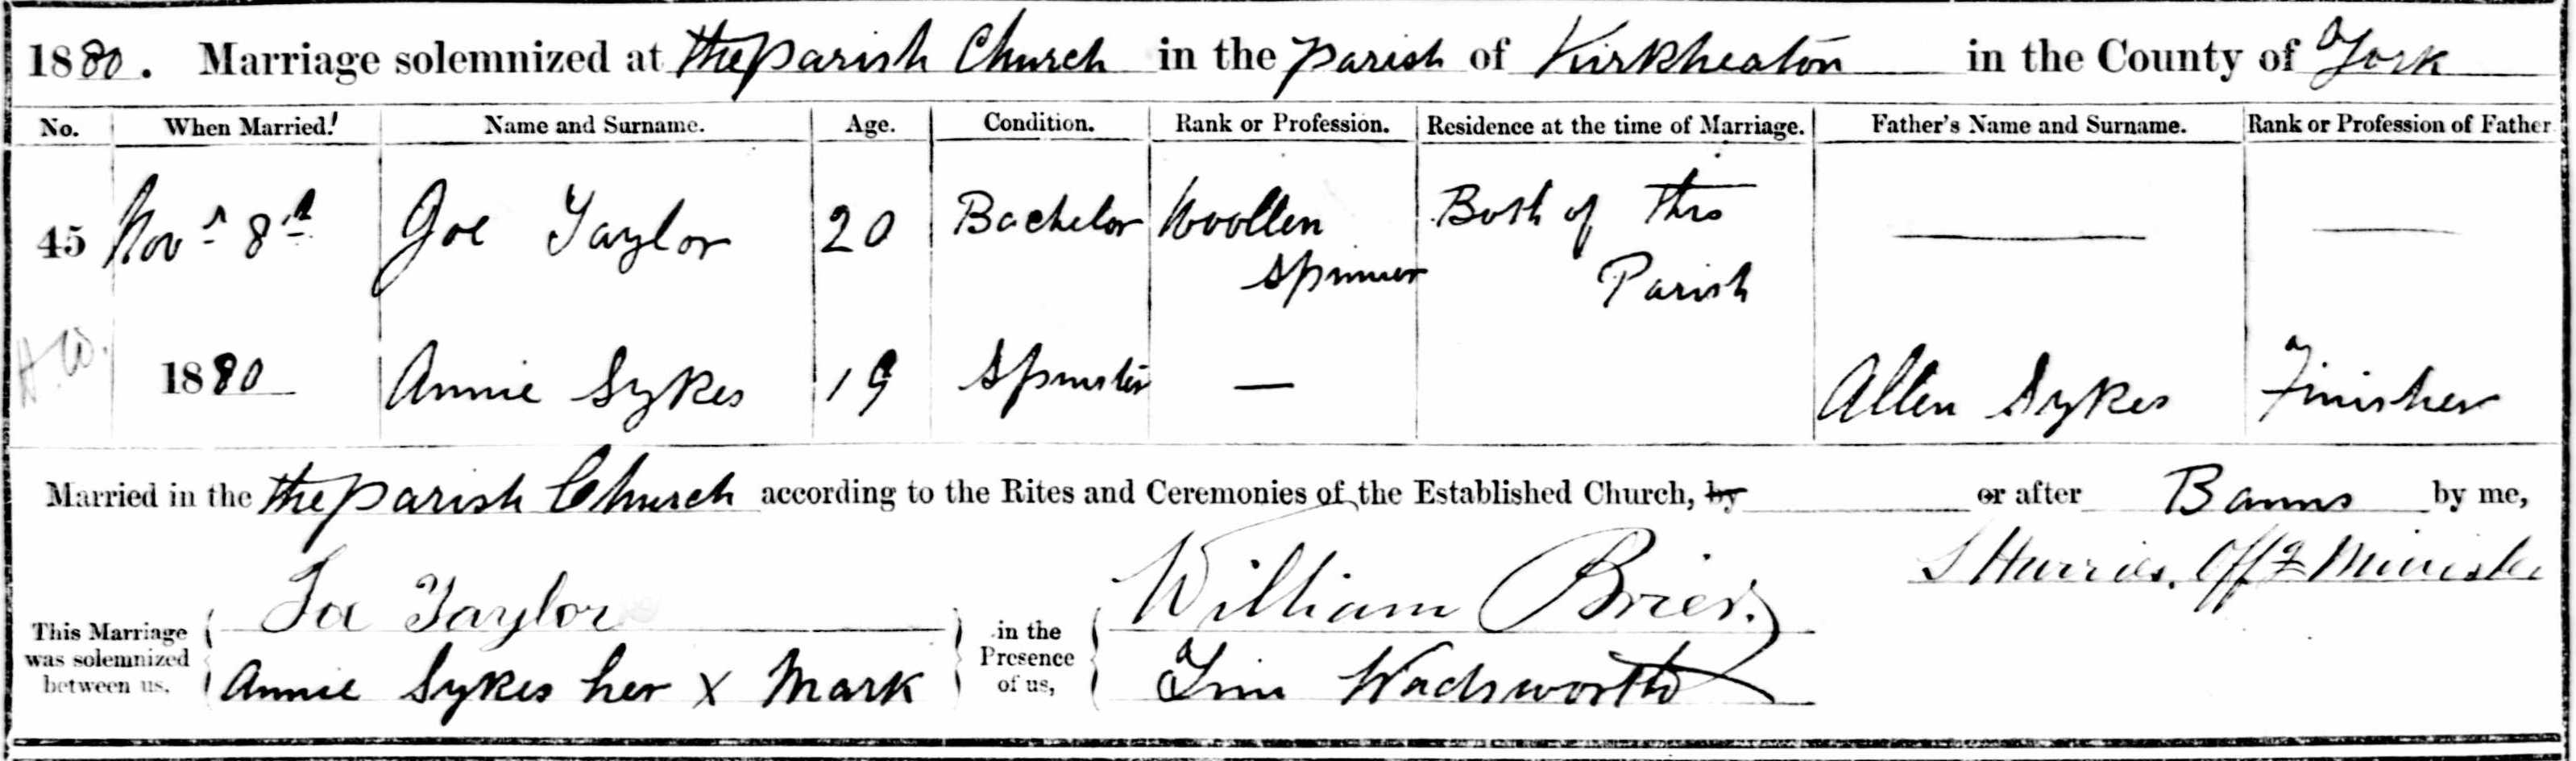 1880. Marriage solemnized at the parish Church in the parish of Kirkheaton in the County of York
No. When Married. Name and Surname. Age. Condition. Rank or Profession. Residence at the time of Marriage. Father's Name and Surname. Rank or Profession of Father
45 Novr 8th Joe Taylor 20 Bachelor Woollen Both of this — —
Spinner Parish
H.W. 1880 Annie Sykes 19 Spinster — Allen Sykes Finisher
Married in the the parish Church according to the Rites and Ceremonies of the Established Church, by or after Banns by me,
Off Minister
Joe Taylor William Brier.
This Marriage was solemnized between us, in the Presence of us,
Annie Sykes her X Mark Tim Wadsworth